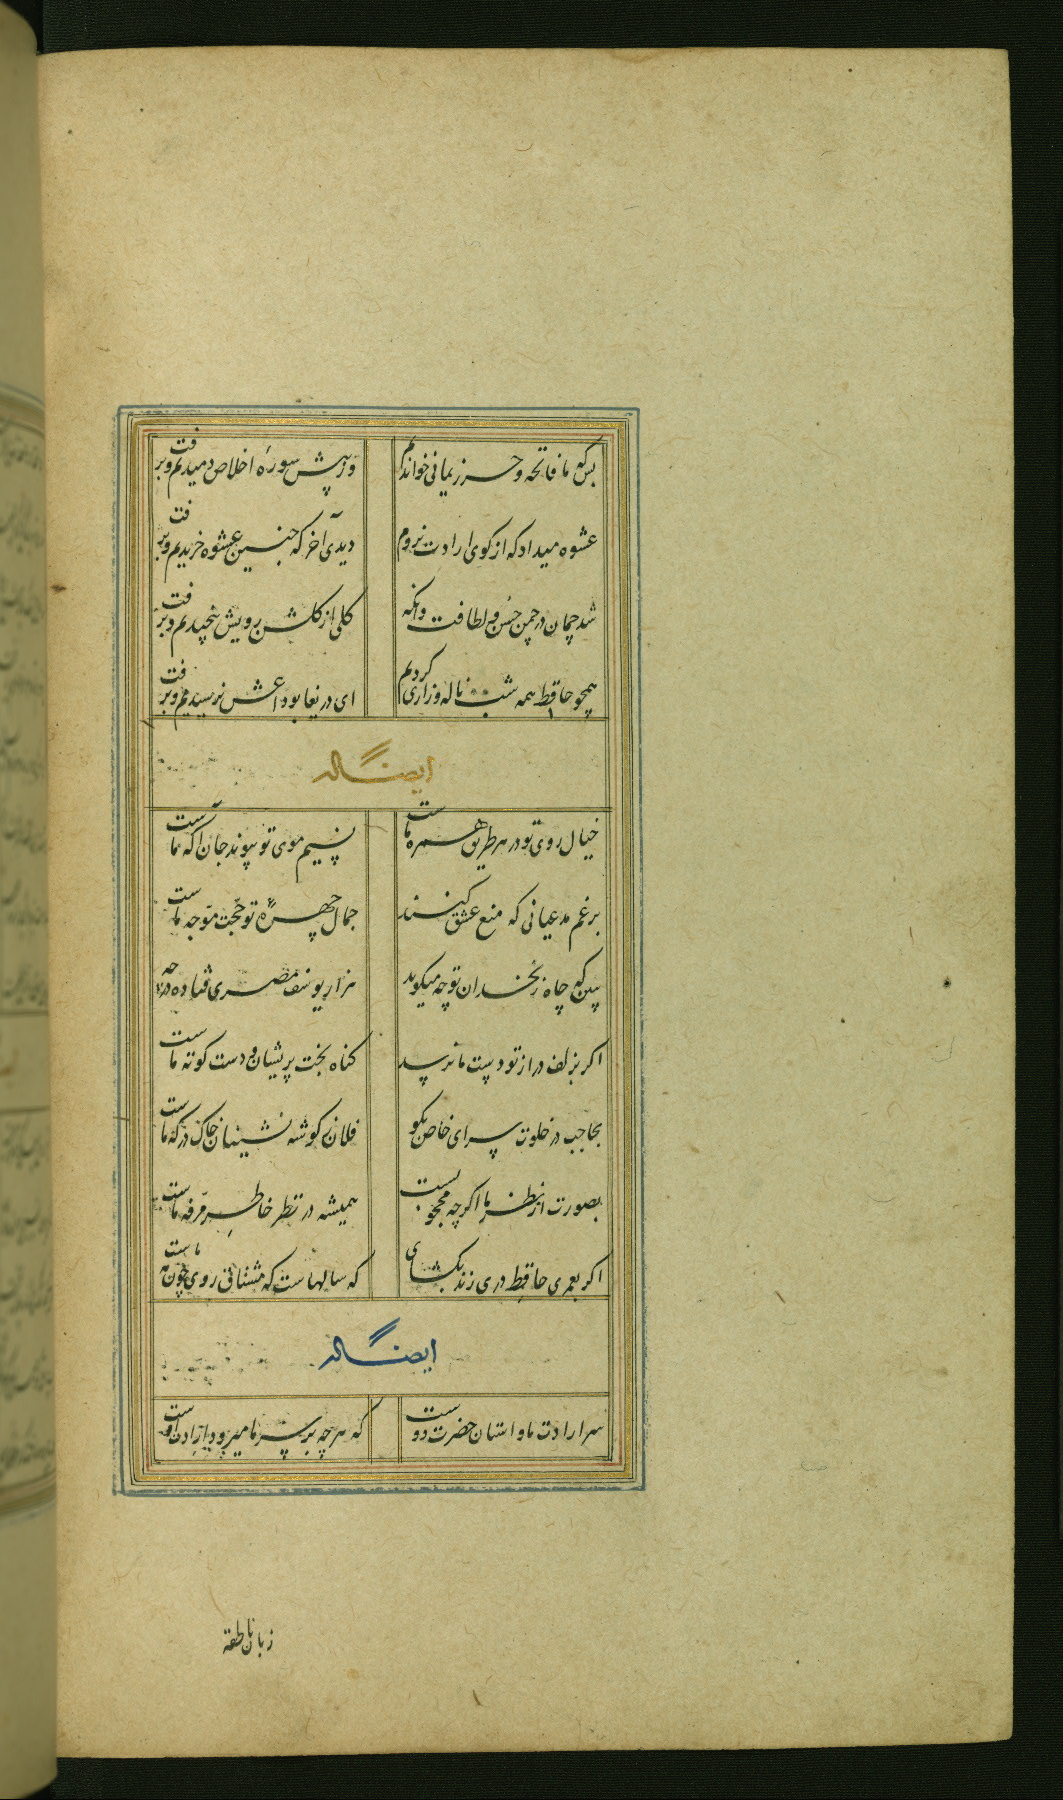 بس که ما فاتحه و حرز یمانی خواندیم وز پیش سورهٔ اخلاص دمیدیم و برفت
عشوه میداد که از کوی ارادت نروم دیدی آخر که چنین عشوه خریدیم و برفت
شد چمان در چمن حسن و لطافت وانکه کلی از کلشن رویش نچیدیم و برفت
همچو حافظ همه شب ناله و زاری کردیم ای دریغا بوداعش نرسیدیم و برفت
ایضاله
خیال روی تو در هر طریق همره ماست نسیم موی تو پیوند جان آکه ماست
برغم مدعیانی که منع عشق کنند جمال چهرهٔ تو حجت موجه ماست
ببین که چاه زنخدان تو چه میکوید هزار یوسف مصری فتاده در چه
اکر بزلف دراز تو دست ما نرسد کناه بخت پریشان و دست کوته ماست
بحاجب در خلوت سرای خاص بکو فلان ز کوشه نشینان خاک درکه ماست
بصورت از نظر ما اکرچه محجوبست همیشه در نظر خاطر مرفه ماست
اکر بعمری حافظ دری زند بکشای که سالهاست که مشتاق روی چون مه ماست
ایضاله
سر ارادت ما و استان حضرت دوست که هرچه بر سر ما میرود ارادت اوست
زبان ناطقه